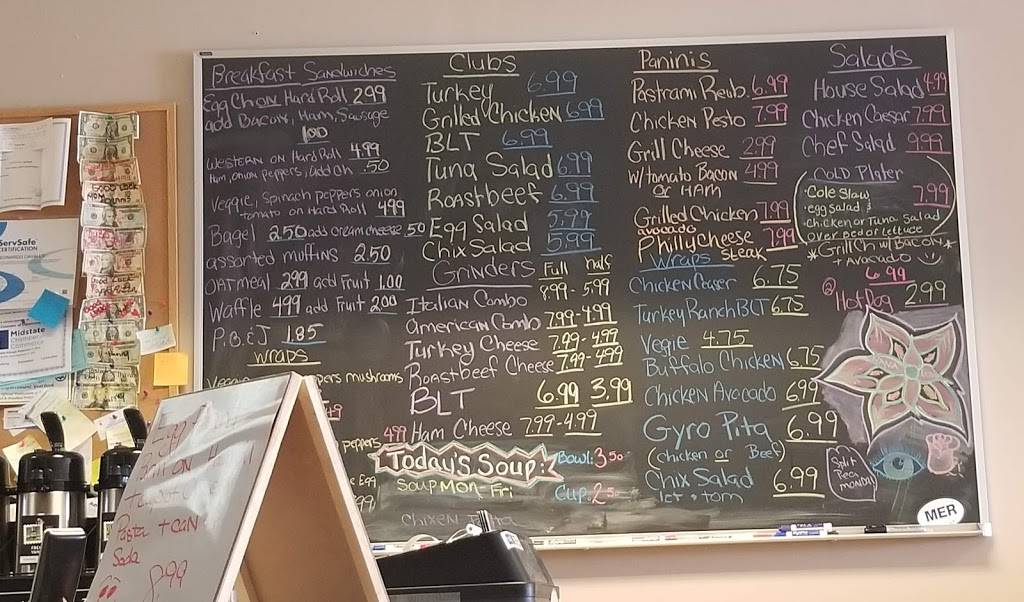 Breakfast Sandwiches
Egg Ch on Hard Roll 2.99
add Bacon, Ham, Sausage
1.00
Western on Hard Roll 4.99
Ham, onion, peppers, add Ch .50
Veggie, Spinach peppers onion
tomato on Hard Roll 4.99
Bagel 2.50 add cream cheese .50
assorted muffins 2.50
OATmeal 2.99 add Fruit 1.00
Waffle 4.99 add Fruit 2.00
P.B.&J 1.85
wraps
mushrooms
peppers 4.99
Clubs
Turkey 6.99
Grilled Chicken 6.99
BLT 6.99
Tuna Salad 6.99
Roastbeef 6.99
Egg Salad 5.99
Chix Salad 5.99
Grinders Full half
Italian Combo 8.99 - 5.99
American Combo 7.99 - 4.99
Turkey Cheese 7.99 - 4.99
Roastbeef Cheese 7.99 - 4.99
BLT 6.99 3.99
Ham Cheese 7.99 - 4.99
Today's Soup:
Soup Mon - Fri
Bowl: 3.50
Cup: 2.5
Paninis
Pastrami Reub. 6.99
Chicken Pesto 7.99
Grill Cheese 2.99
w/tomato Bacon 4.99
or HAM
Grilled Chicken 7.99
avocado
Philly Cheese 7.99
Steak
Wraps
Chicken Ceaser 6.75
Turkey Ranch BCT 6.75
Vegie 4.75
Buffalo Chicken 6.75
Chicken Avocado 6.99
Gyro Pita 6.99
(chicken or Beef)
Chix Salad 6.99
let + tom
Salads
House Salad 4.99
Chicken Caesar 7.99
Chef Salad 9.99
COLD Plater
Cole Slaw 7.99
egg Salad &
chicken or Tuna Salad
over bed of lettuce
*Grill Ch w/ Bacon*
+ Avocado
6.99
@ Hot Dog 2.99
Split
Pea
Monday
MER
ServSafe
CERTIFICATION
Midstate
Pasta + can
Soda
8.99